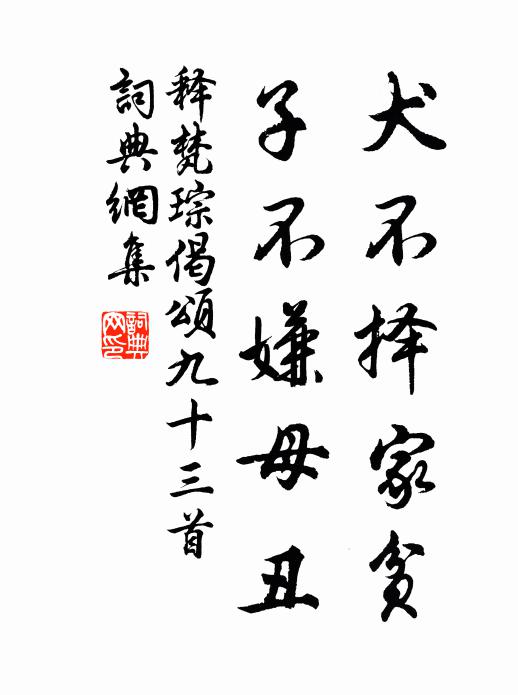 犬不择家贫
子不嫌母丑
释梵琮偈颂九十三首
詞典網集
詞典网印